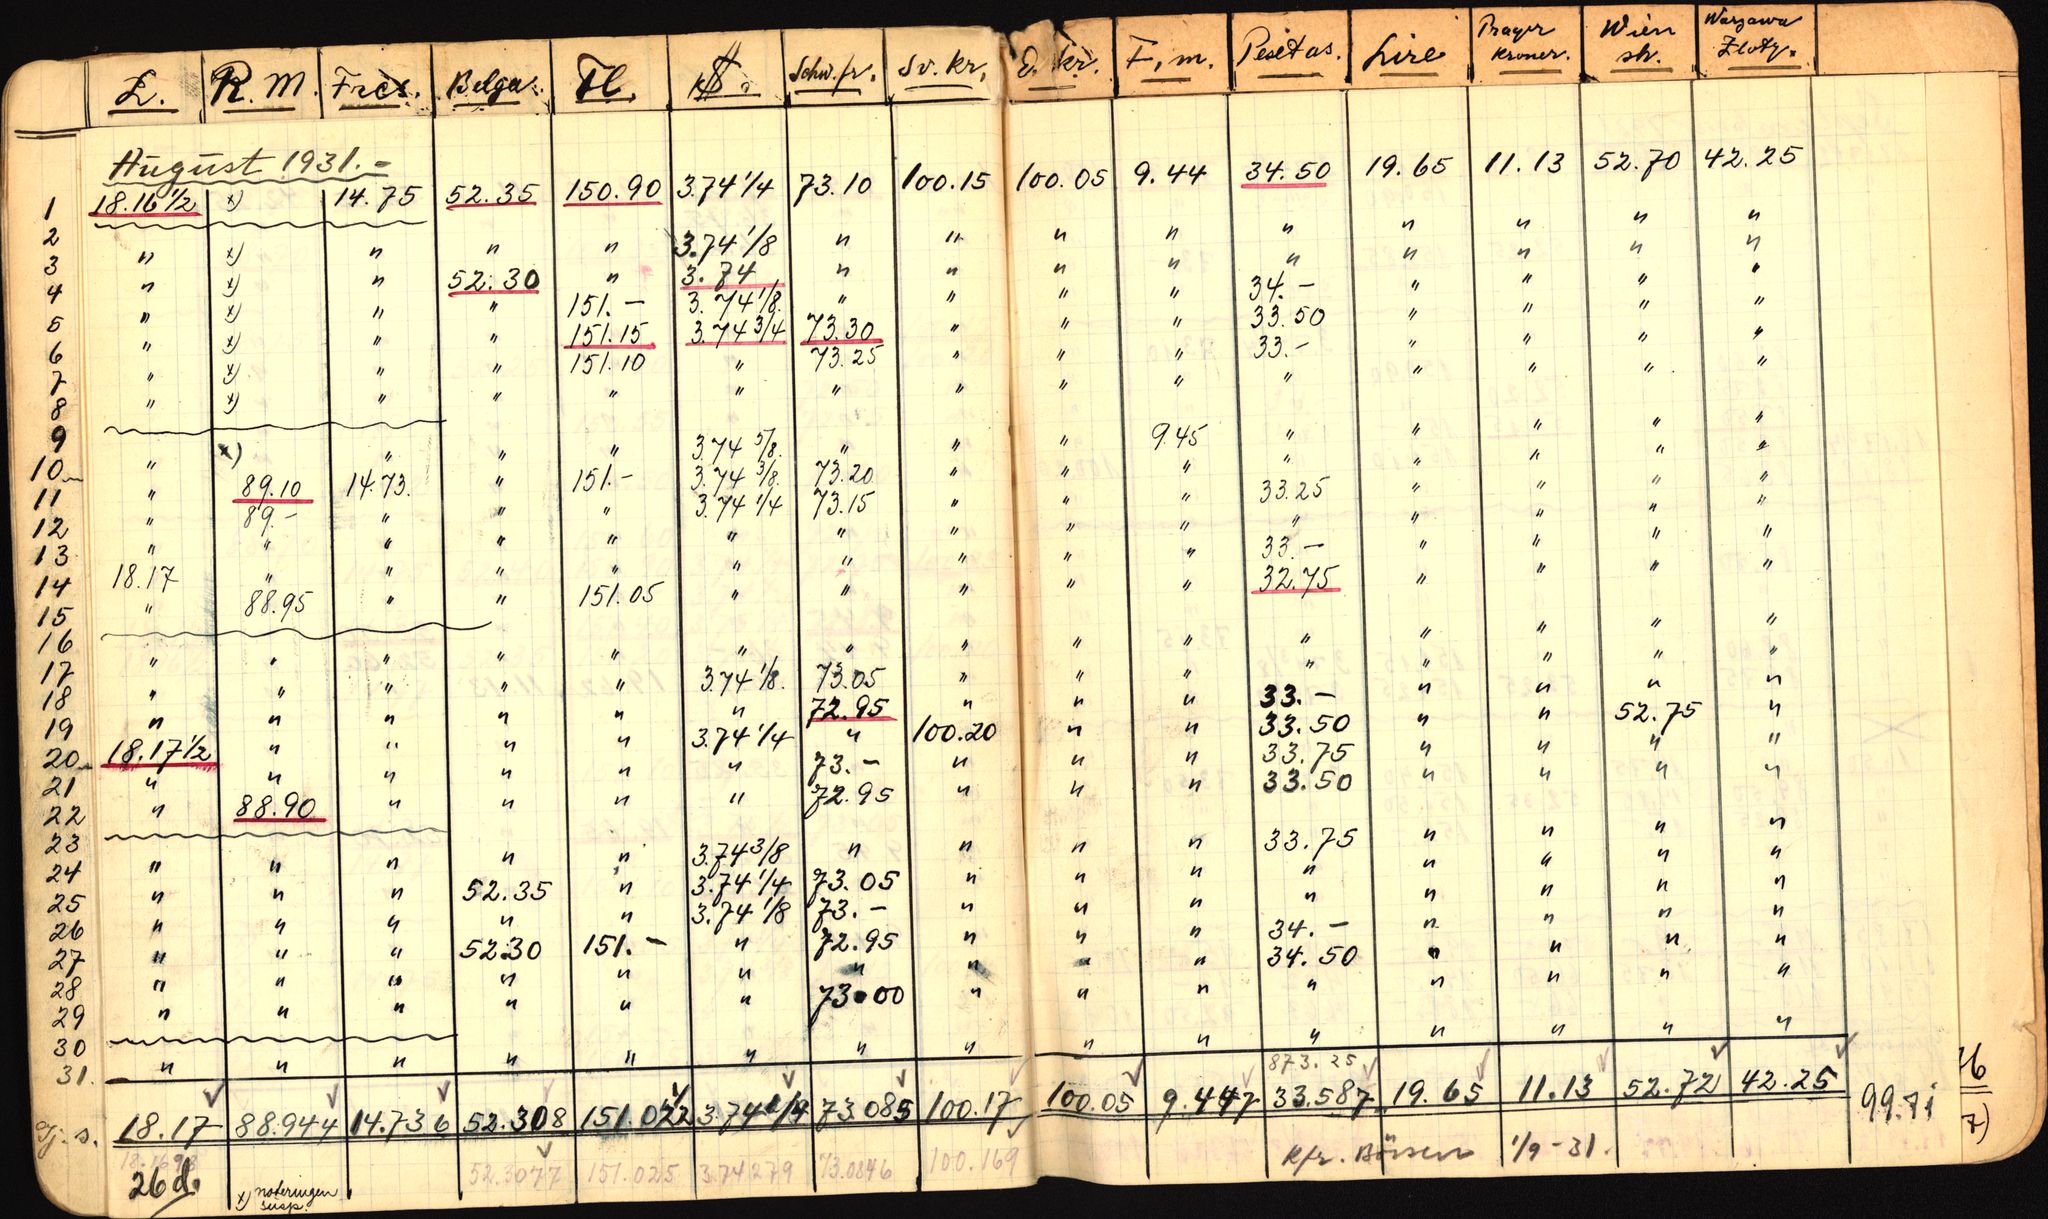 £. R.M. Frcs. Belga. Fl. $. Schw.fr. Sv.kr. D.kr. F.m. Pesetas. Lire Prager kroner. Wien sh. Warzawa Zloty.
August 1931.-
1 18.16 1/2 x) 14.75 52.35 150.90 3.74 1/4 73.10 100.15 100.05 9.44 34.50 19.65 11.13 52.70 42.25
2
3 " x) " " " 3.74 1/8 " " " " " " " " "
4 " x) " 52.30 " 3.74 " " " " " " " " "
5 " x) " " 151.- 3.74 1/8 " " " " 34.- " " " "
6 " x) " " 151.15 3.74 3/4 73.30 " " " 33.50 " " " "
7 " x) " " 151.10 " 73.25 " " " 33.- " " " "
8 " x) " " " " " " " " " " " " "
9
10 " x) " " " 3.74 5/8 " " " 9.45 " " " " "
11 " 89.10 14.73 " 151.- 3.74 3/8 73.20 " " " " " " " "
12 " 89.- " " " 3.74 1/4 73.15 " " " 33.25 " " " "
13 " " " " " " " " " " " " " " "
14 18.17 " " " " " " " " " 33.- " " " "
15 " 88.95 " " 151.05 " " " " " 32.75 " " " "
16
17 " " " " " " " " " " " " " " "
18 " " " " " 3.74 1/8 73.05 " " " " " " " "
19 " " " " " " 72.95 " " " 33.- " " " "
20 18.17 1/2 " " " " 3.74 1/4 " 100.20 " " 33.50 " " 52.75 "
21 " " " " " " 73.- " " " 33.75 " " " "
22 " 88.90 " " " " 72.95 " " " 33.50 " " " "
23
24 " " " " " 3.74 3/8 " " " " 33.75 " " " "
25 " " " 52.35 " 3.74 1/4 73.05 " " " " " " " "
26 " " " " " 3.74 1/8 73.- " " " " " " " "
27 " " " 52.30 151.- " 72.95 " " " 34.- " " " "
28 " " " " " " " " " " 34.50 " " " "
29 " " " " " " 73.00 " " " " " " " "
30
31. " " " " " " " " " " " " " " "
873.25
Gj.s. 18.17 88.944 14.736 52.308 151.022 3.74 1/4 73.085 100.17 100.05 9.447 33.587 19.65 11.13 52.72 42.25 99.71
18.1698 52.3077 151.025 3.74279 73.0846 100.169 Kfr. Börsen 1/9-31.
26 d. x) noteringen susp.